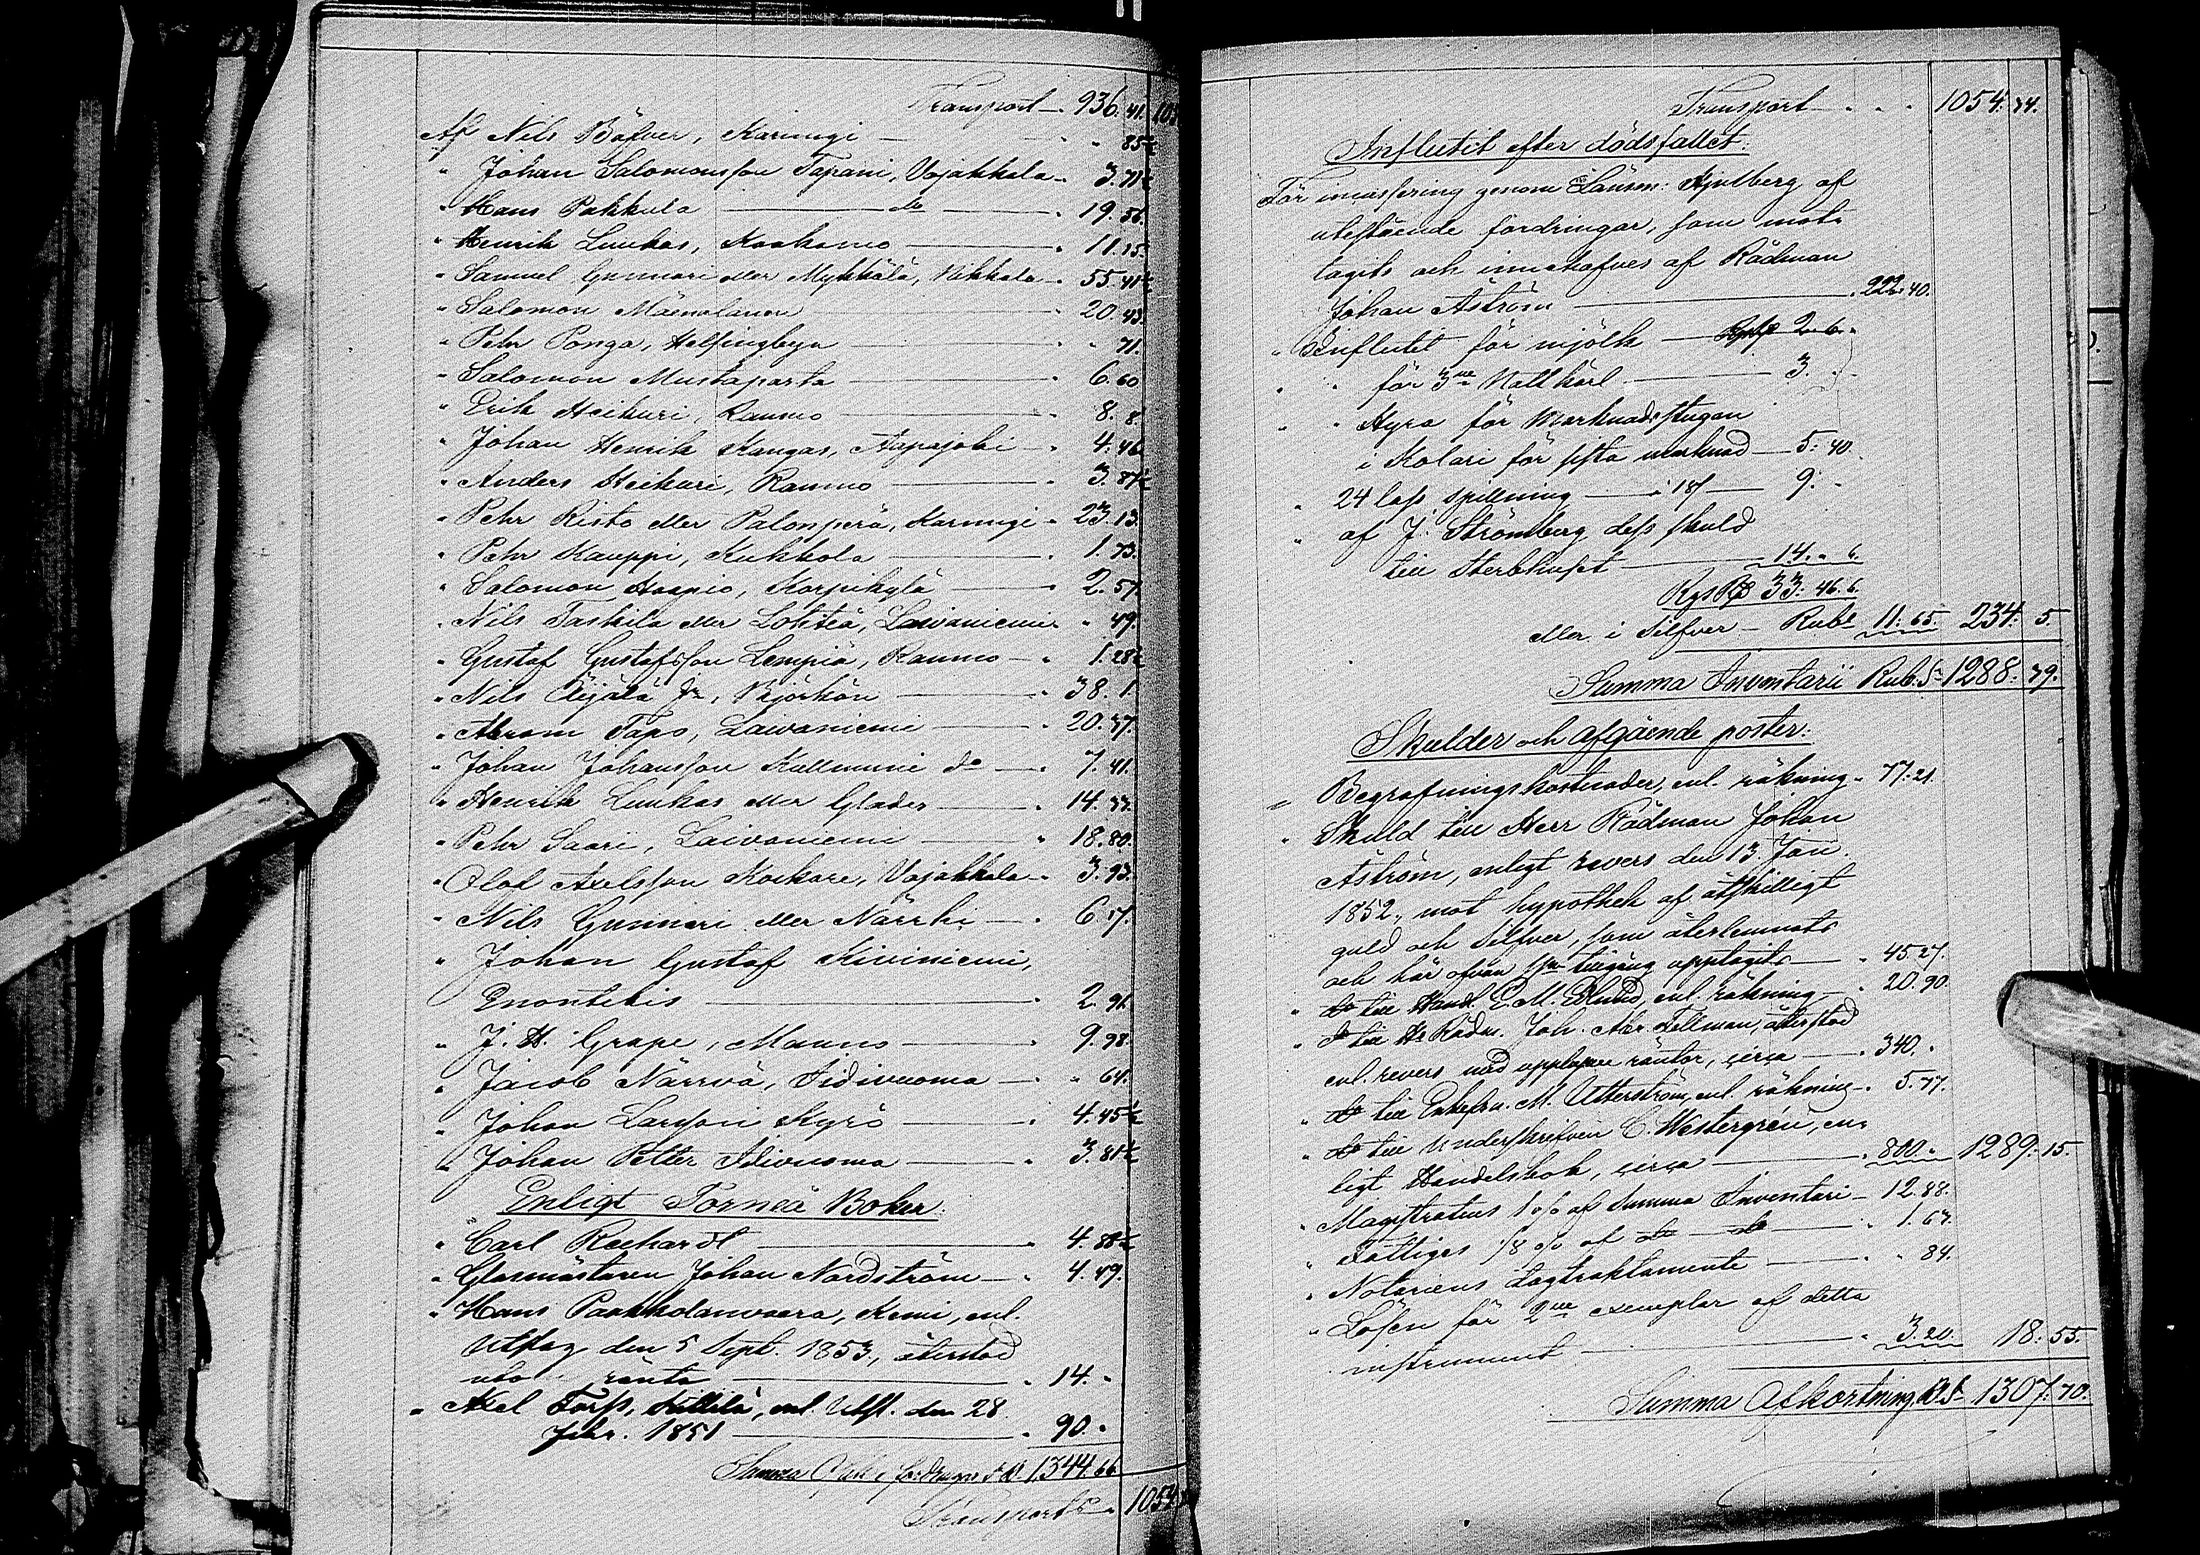 Transport 936. 41.
Af Nils Bäfver, Karungi " 85½
" Johan Salomonsson Tapani, Vojakkala 3. 71½
" Hans Pakkula do 19. 56.
" Henrik Luukas, Kaakamo 11. 15.
" Samuel Gunnari eller Mykkälä, Nikkala 55. 41½
" Salomon 20. 43.
" Pehr Ponga, Helsingbyn " 71.
" Salomon Mustaparta 6. 60
" Erik Heikuri, Raumo 8. 8.
" Johan Henrik Kangas, Aapajoki 4. 46
" Anders Heikuri, Raumo 3. 87½
" Pehr Risto eller Palonperä, Karungi 23. 13.
" Pehr Kauppi, Kukkola 1. 73.
" Salomon Haapio, Korpikylä 2. 57.
" Nils Taskila eller Lohteä, Laivaniemi " 49.
" Gustaf Gustafsson Lempiä, Raumo 1. 28½
" Nils Äijälä Jr, Björkön 38. 1.
" Abram Tapo, Laivaniemi 20. 37.
" Johan Johansson Kallinuine do 7. 41.
" Henrik Luukas eller Glader 14. 33.
" Pehr Saari, Laivaniemi 18. 80.
" Olof Axelsson Kockare, Vojakkala 3. 93.
" Nils Gunnari eller Närrhi 6. 17.
" Johan Gustaf Kiviniemi,
Enontekis 2. 91.
" J. H. Grape, Mauno 9. 98.
" Jacob Närrvä, Idivuoma " 64.
" Johan Larsson Kyrö 4. 45½
" Johan Petter Idivuoma 3. 81½
Enligt Torneå Böker.
" Carl Reckardt 4. 88½
" Glasmästaren Johan Nordström 4. 49.
" Hans Paakkolanvaara, Kemi, enl.
Utslag den 5 Sept. 1853, återstod
utom ränta 14. "
" Axel Forss, enl. Utsl. den 28
Febr. 1851 90. "
Summa fordringar S R 1344. 66
Transport 1054.
Transport 1054. 74.
Influtit efter dödsfallet:
För incassering genom Länsm: Hjulberg af
utestående fordringar, som mot-
tagits och innehafves af Rådman
Johan Åström 222. 40.
" Influtit för mjölk Rgs 2. 6. "
" " för 3ne Nattkärl 3. "
" " Hyra för Marknadsstugan
i Kolari för sista marknad 5: 40.
" 24 lass spillning à 18s 9. "
" af J. Strömberg dess skuld
till Sterbhuset 14. " 6.
RgsRd 33: 46. 6.
eller i Silfver Rubl 11: 65. 234. 5.
Summa Inventarii Rub. S 1288. 79.
Skulder och afgående poster:
" Begrafningskostnader, enl. räkning 77: 21.
" Skuld till Herr Rådman Johan
Åström, enligt revers den 13 Jan.
1852, mot hypothek af åtskilligt
guld och Silfver, som återlemnats
och här ofvan som tillgång upptagits 45. 27.
" do till Handl. E. M. Eklund, enl. räkning 20. 90.
" do till Hr Rådm. Joh. Abr. Tellman, återstod
enl. revers med upplupne räntor, circa 340. "
" do till Enkefru M. Utterström, enl. räkning 5. 77.
" do till Underskrifven C. Westergrén, en-
ligt Handelsbok, circa 800. " 1289: 15.
" Magistratens 1 o/o af Summa Inventari 12. 88.
" Fattiges 1/8 o/o af do do 1. 63.
" Notariens Dagtraktamente " 84.
" Lösen för 2ne exemplar af detta
instrument 3. 20. 18: 55.
Summa Afkortning R. S. 1307: 70.